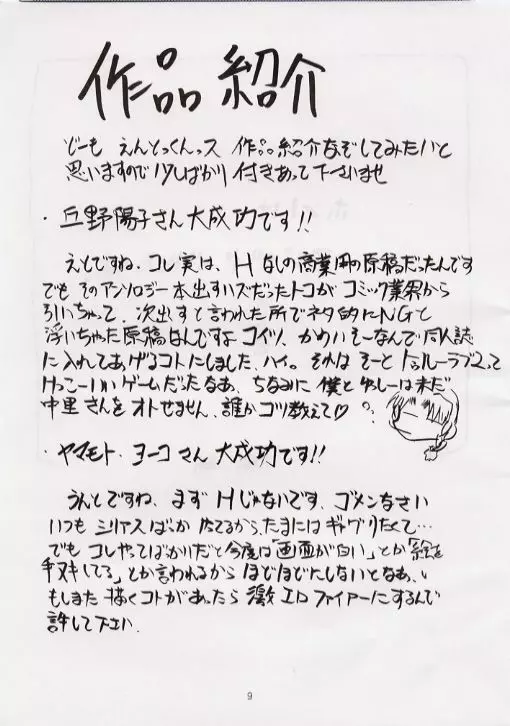 作品紹介
どーも えんどっくんっス 作品紹介なぞしてみたいと
思いますので 少しばかり 付きあって下さいませ
・丘野陽子さん大成功です!!
えとですね、コレ実は、Hなしの商業用の原稿だったんです
でも そのアンソロジー本出すハズだったトコが コミック業界から
引いちゃって、次出すと言われた所でネタ的にNGと
浮いちゃった原稿なんですよコイツ、かわいそーなんで同人誌
に入れてあげるコトにしました、ハイ。それは そーと トゥルーラブ2って
けっこーいいゲームだったなあ、ちなみに 僕と は未だ
中里さんをオトせません、誰かコツ教えて♡
・ヤマモト・ヨーコさん 大成功です!!
うんとですね、まず Hじゃないです、ゴメンなさい
いつも シリアスばっか 立てるから、たまには ギャグりたくて…
でも コレやってばかりだと今度は「画面が白い」とか「絵を
手ヌキしてる」とか言われるから ほどほどにしないとなあ、
もしまた 描くコトがあったら 激エロファイアーにするんで
許して下さい.
9